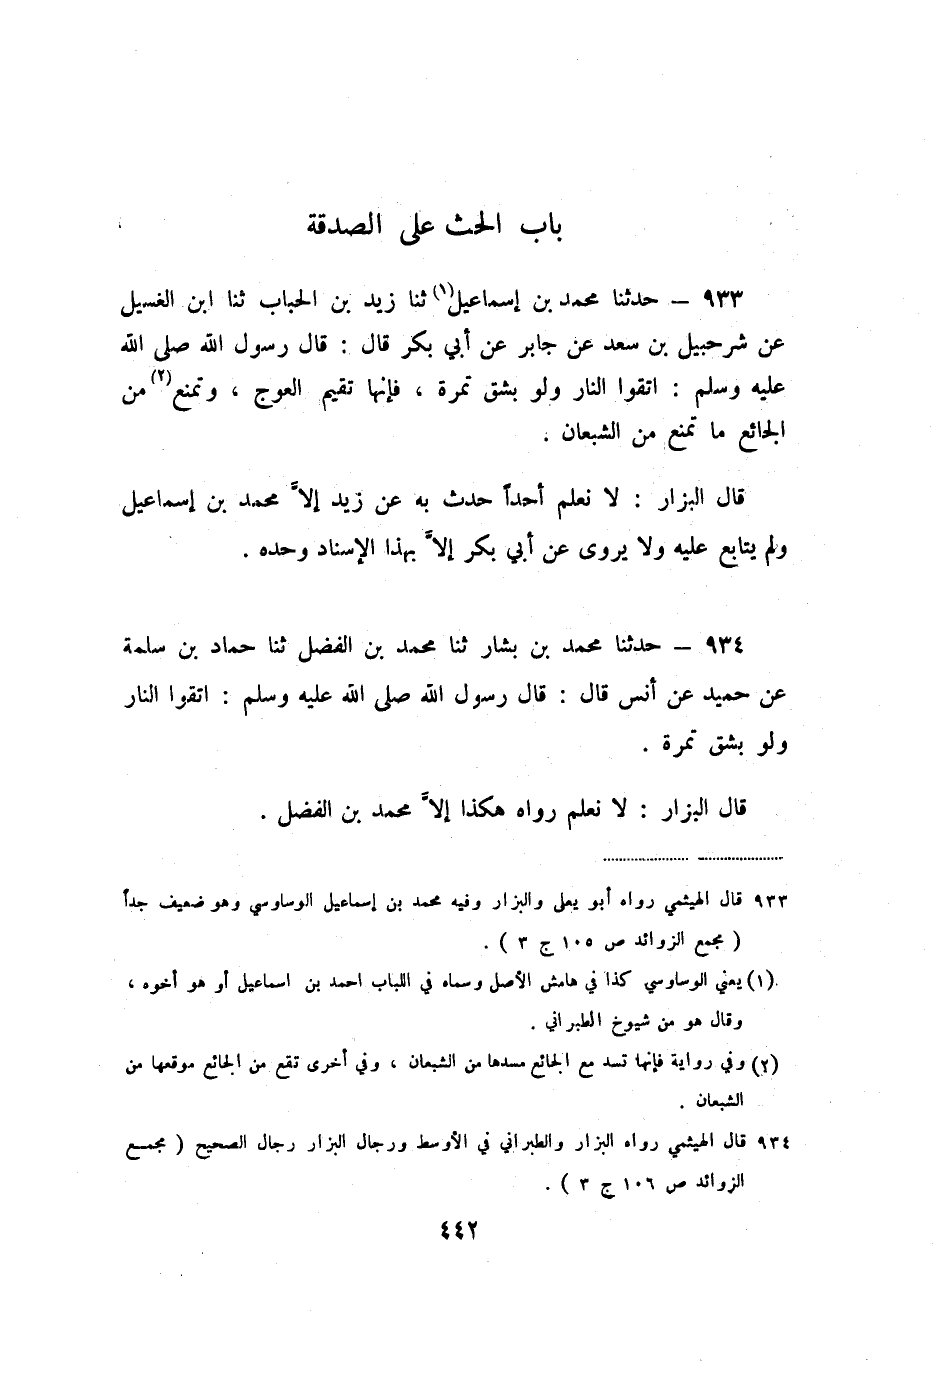 باب الحث على الصدقة
٩٣٣ – حدثنا محمد بن إسماعيل(١) ثنا زيد بن الحباب ثنا ابن الغسيل
عن شرحبيل بن سعد عن جابر عن أبي بكر قال : قال رسول الله صلى الله
عليه وسلم : اتقوا النار ولو بشق تمرة ، فإنها تقيم العوج ، وتمنع(٢) من
الجائع ما تمنع من الشبعان .
قال البزار : لا نعلم أحداً حدث به عن زيد إلاَّ محمد بن إسماعيل
ولم يتابع عليه ولا يروى عن أبي بكر إلاَّ بهذا الإسناد وحده .
٩٣٤ – حدثنا محمد بن بشار ثنا محمد بن الفضل ثنا حماد بن سلمة
عن حميد عن أنس قال : قال رسول الله صلى الله عليه وسلم : اتقوا النار
ولو بشق تمرة .
قال البزار : لا نعلم رواه هكذا إلاَّ محمد بن الفضل .
٩٣٣ قال الهيثمي رواه أبو يعلى والبزار وفيه محمد بن إسماعيل الوساوسي وهو ضعيف جداً
( مجمع الزوائد ص ١٠٥ ج ٣ ) .
(١) يعني الوساوسي كذا في هامش الأصل وسماه في اللباب احمد بن اسماعيل أو هو أخوه ،
وقال هو من شيوخ الطبراني .
(٢) وفي رواية فإنها تسد مع الجائع مسدها من الشبعان ، وفي أخرى تقع من الجائع موقعها من
الشبعان .
٩٣٤ قال الهيثمي رواه البزار والطبراني في الأوسط ورجال البزار رجال الصحيح ( مجمع
الزوائد ص ١٠٦ ج ٣ ) .
٤٤٢